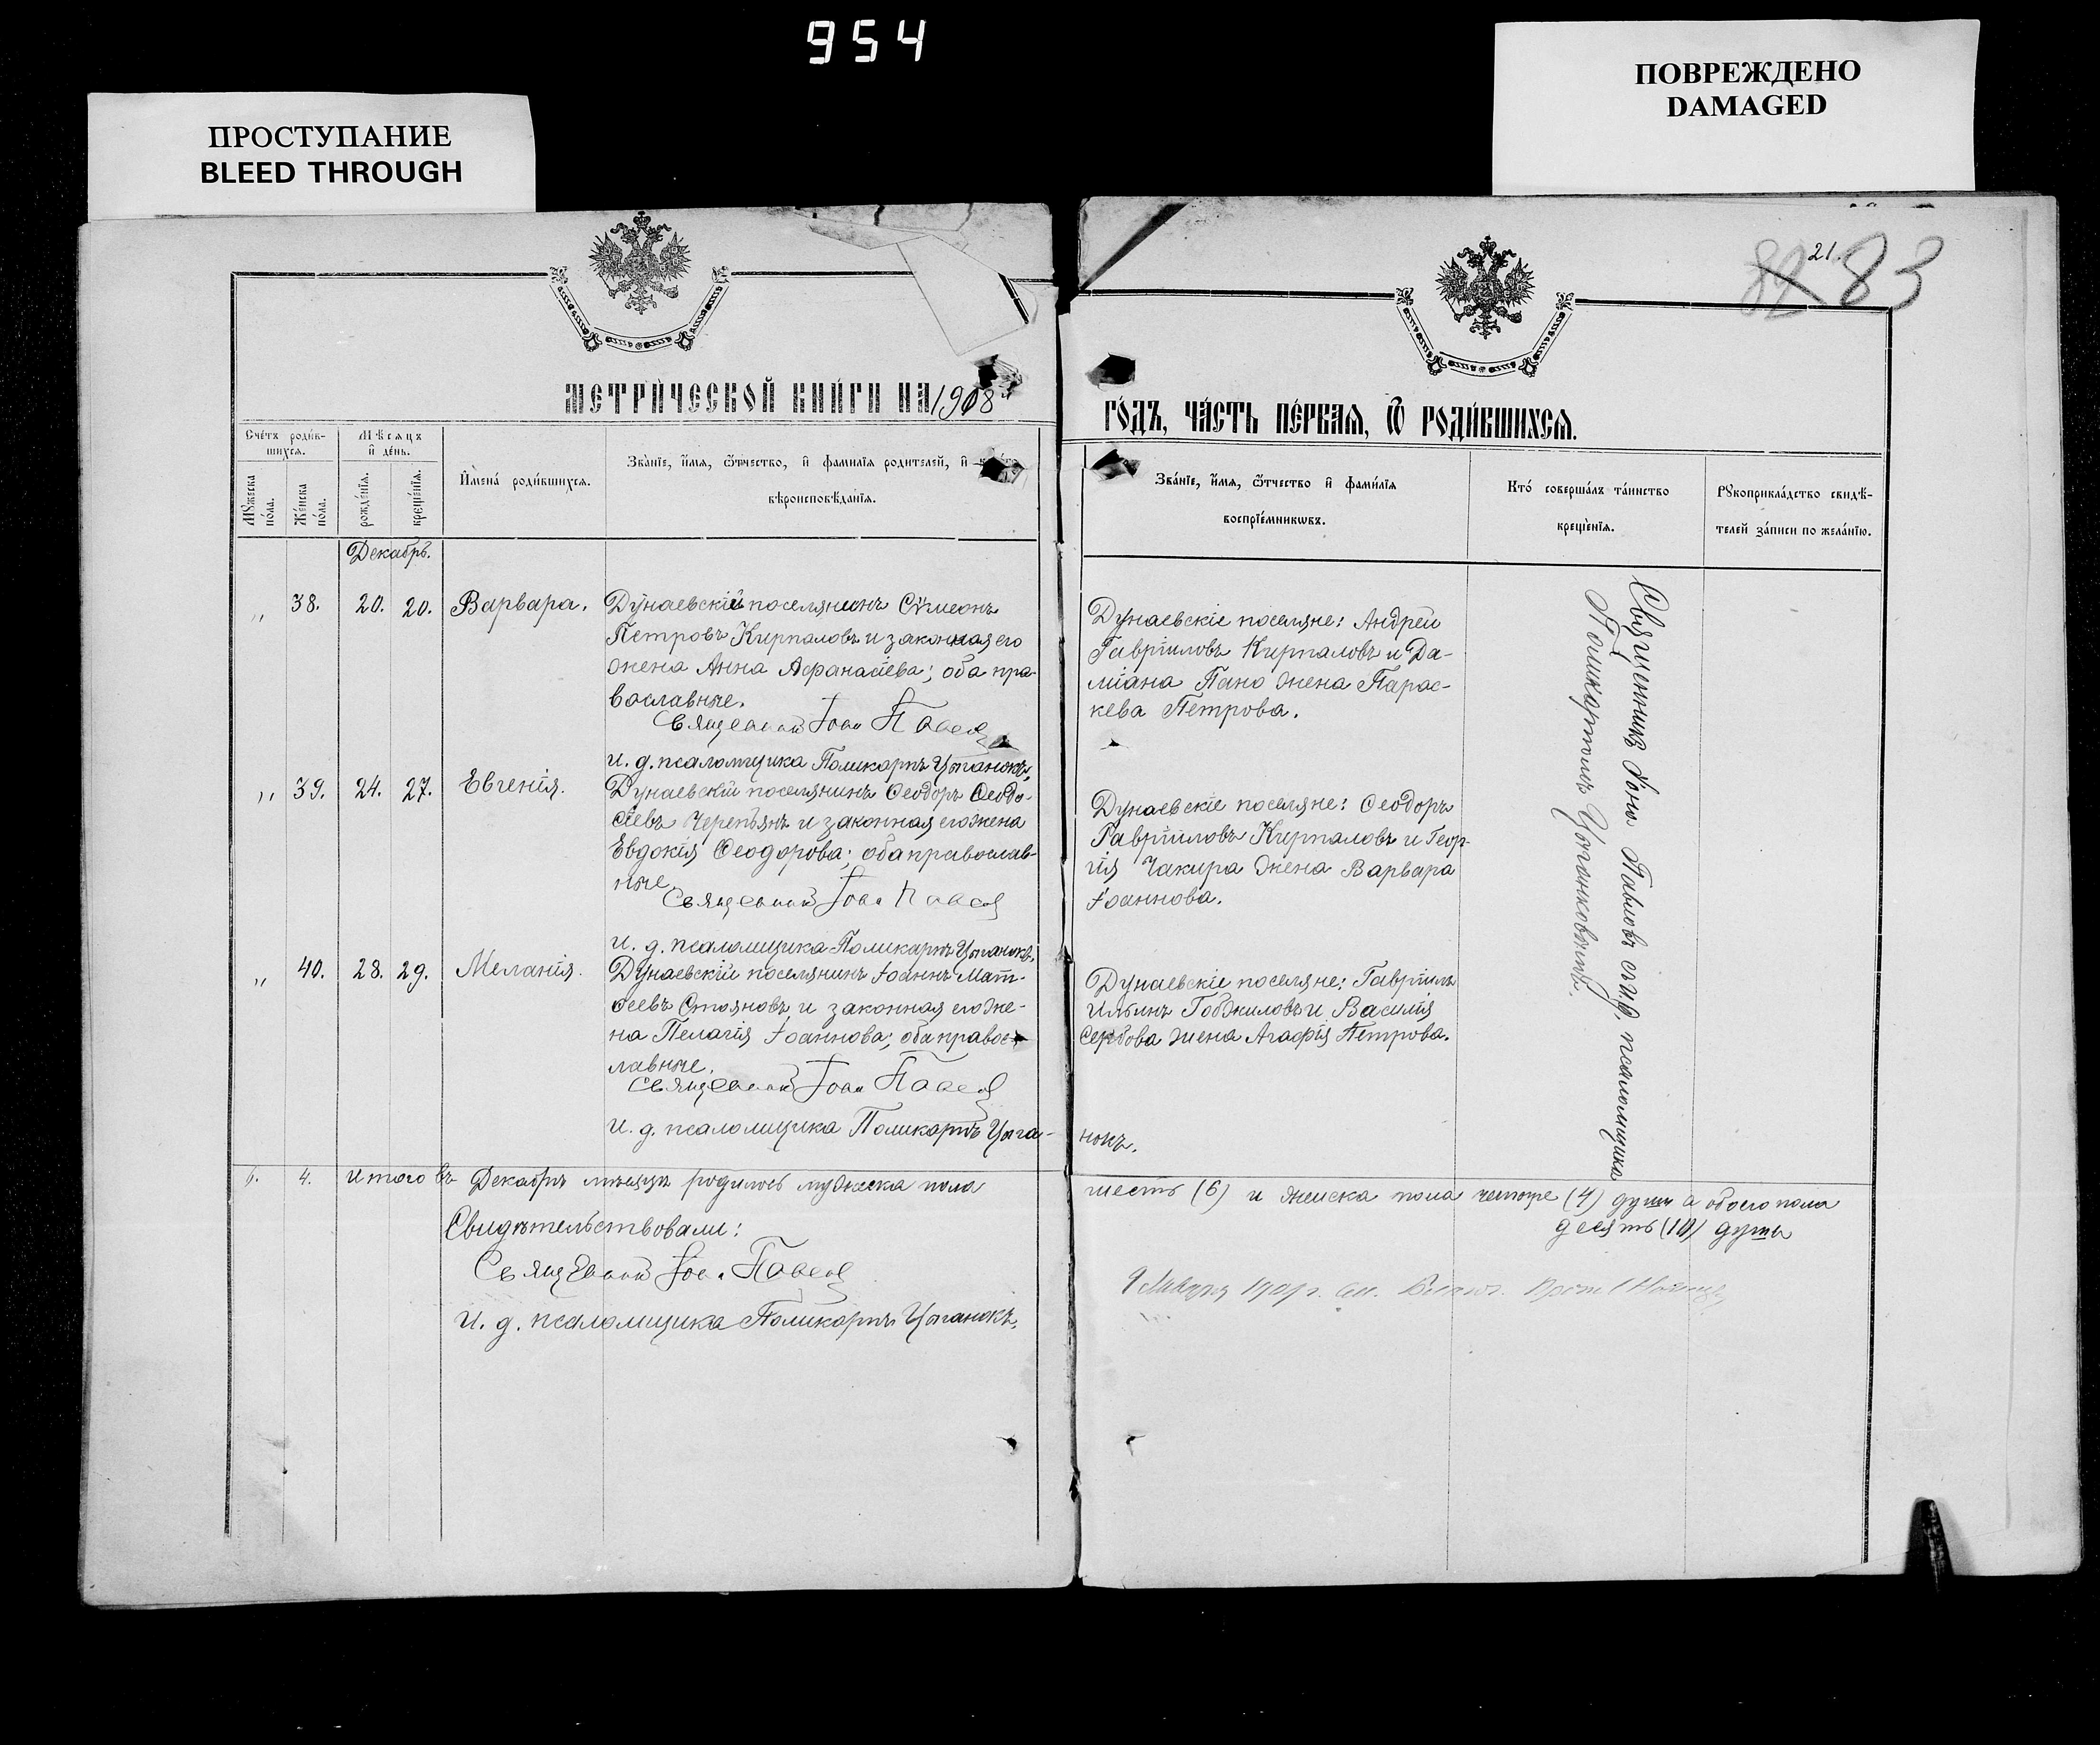 954
ПРОСТУПАНИЕ
BLEED THROUGH
ПОВРЕЖДЕНО
DAMAGED
21.
82 83
МЕТРИ́ЧЕСКОЙ КНИ́ГИ НА 1908
ГО́ДЪ, ЧА́СТЬ ПЕ́РВАѦ, Ѿ РОДИ́ВШИХСѦ.
Сче́тъ роди́в-
шихсѧ.
Мѣ́сѧцъ
и҆ де́нь.
Мꙋ́жеска
по́ла.
Же́нска
по́ла.
рожде́нїѧ.
креще́нїѧ.
И҆мена̀ роди́вшихсѧ.
Зва́нїе, и҆́мѧ, ѻ҆́тчество, и҆ фами́лїѧ роди́телей, и҆
вѣроисповѣ́данїѧ.
Зва́нїе, и҆́мѧ, ѻ҆́тчество и҆ фами́лїѧ
воспрїе́мникѡвъ.
Кто́ соверша́лъ та́инство
креще́нїѧ.
Рꙋкоприкла́дство свидѣ́-
телей за́писи по жела́нїю.
Декабрь.
„ 38. 20. 20. Варвара.
Дунаевскій поселянинъ Сѵмеонъ
Петровъ Кирпаловъ и законная его
жена Анна Афанасіева; оба пра-
вославные.
Священник Іоан Павлов
и. д. псаломщика Поликарпъ Цыганокъ.
Дунаевскіе поселяне: Андрей
Гавріиловъ Кирпаловъ и Да-
міана Пано жена Парас-
кева Петрова.
„ 39. 24. 27. Евгенія.
Дунаевскій поселянинъ Ѳеодоръ Ѳеодо-
сіевъ Черепъянъ и законная его жена
Евдокія Ѳеодорова; оба православ-
ные.
Священник Іоан Павлов
и. д. псаломщика Поликарпъ Цыганокъ.
Дунаевскіе поселяне: Ѳеодоръ
Гавріиловъ Кирпаловъ и Геор-
гія Чакира жена Варвара
Іоаннова.
„ 40. 28. 29. Меланія.
Дунаевскій поселянинъ Іоаннъ Мат-
ѳеевъ Стояновъ и законная его же-
на Пелагія Іоаннова; оба правос-
лавные.
Священник Іоан Павлов
и. д. псаломщика Поликарпъ Цыга-
нокъ.
Дунаевскіе поселяне: Гавріилъ
Ильинъ Гобжиловъ и Василія
Сербова жена Агафія Петрова.
Священникъ Іоан Павловъ съ и. д. псаломщика
Поликарпомъ Цыганковымъ.
6. 4. Итого въ Декабрѣ мѣсяцѣ родилось мужеска пола
шесть (6) и женска пола четыре (4) душъ а обоего пола
десять (10) душъ
Свидѣтельствовали:
Священник Іоан Павлов
И. д. псаломщика Поликарпъ Цыганокъ.
Января 1909 г.